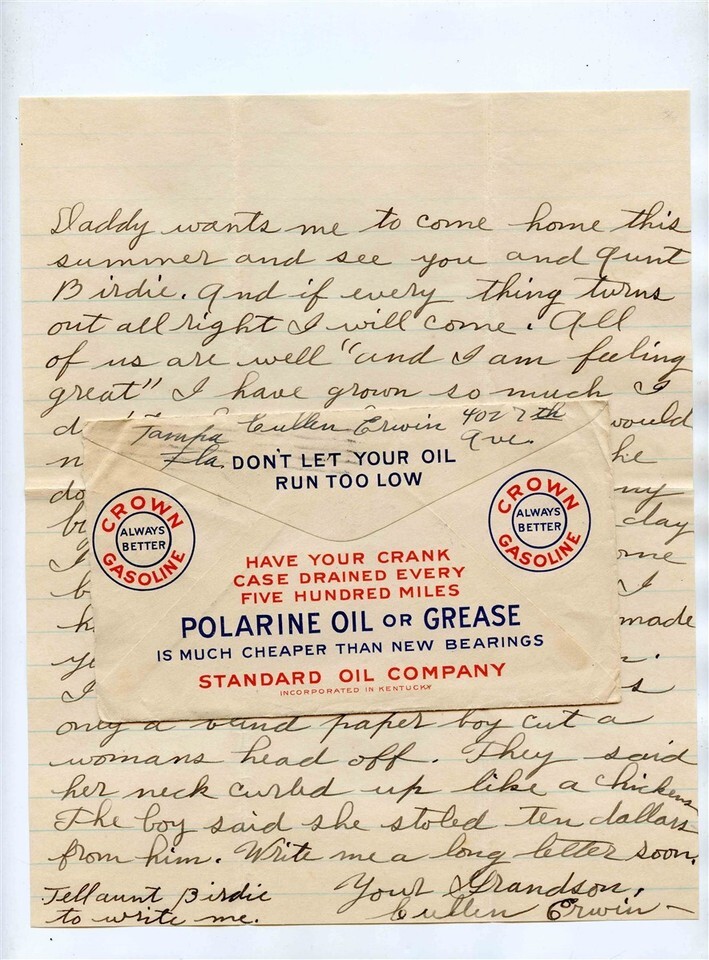 Daddy wants me to come home this
summer and see you and Aunt
Birdie. And if every thing turns
out all right I will come. All
of us are well "and I am feeling
great" I have grown so much I
would
my
day
I
I
made
I
only a blind paper boy cut a
womans head off. They said
her neck curled up like a chickens
The boy said she stoled ten dollars
from him. Write me a long letter soon.
Your Grandson,
Cullen Erwin -
Tell aunt Birdie
to write me.
Cullen Erwin 402 7th
Ave.
Tampa
Fla.
DON'T LET YOUR OIL
RUN TOO LOW
CROWN
ALWAYS
BETTER
GASOLINE
CROWN
ALWAYS
BETTER
GASOLINE
HAVE YOUR CRANK
CASE DRAINED EVERY
FIVE HUNDRED MILES
POLARINE OIL OR GREASE
IS MUCH CHEAPER THAN NEW BEARINGS
STANDARD OIL COMPANY
INCORPORATED IN KENTUCKY